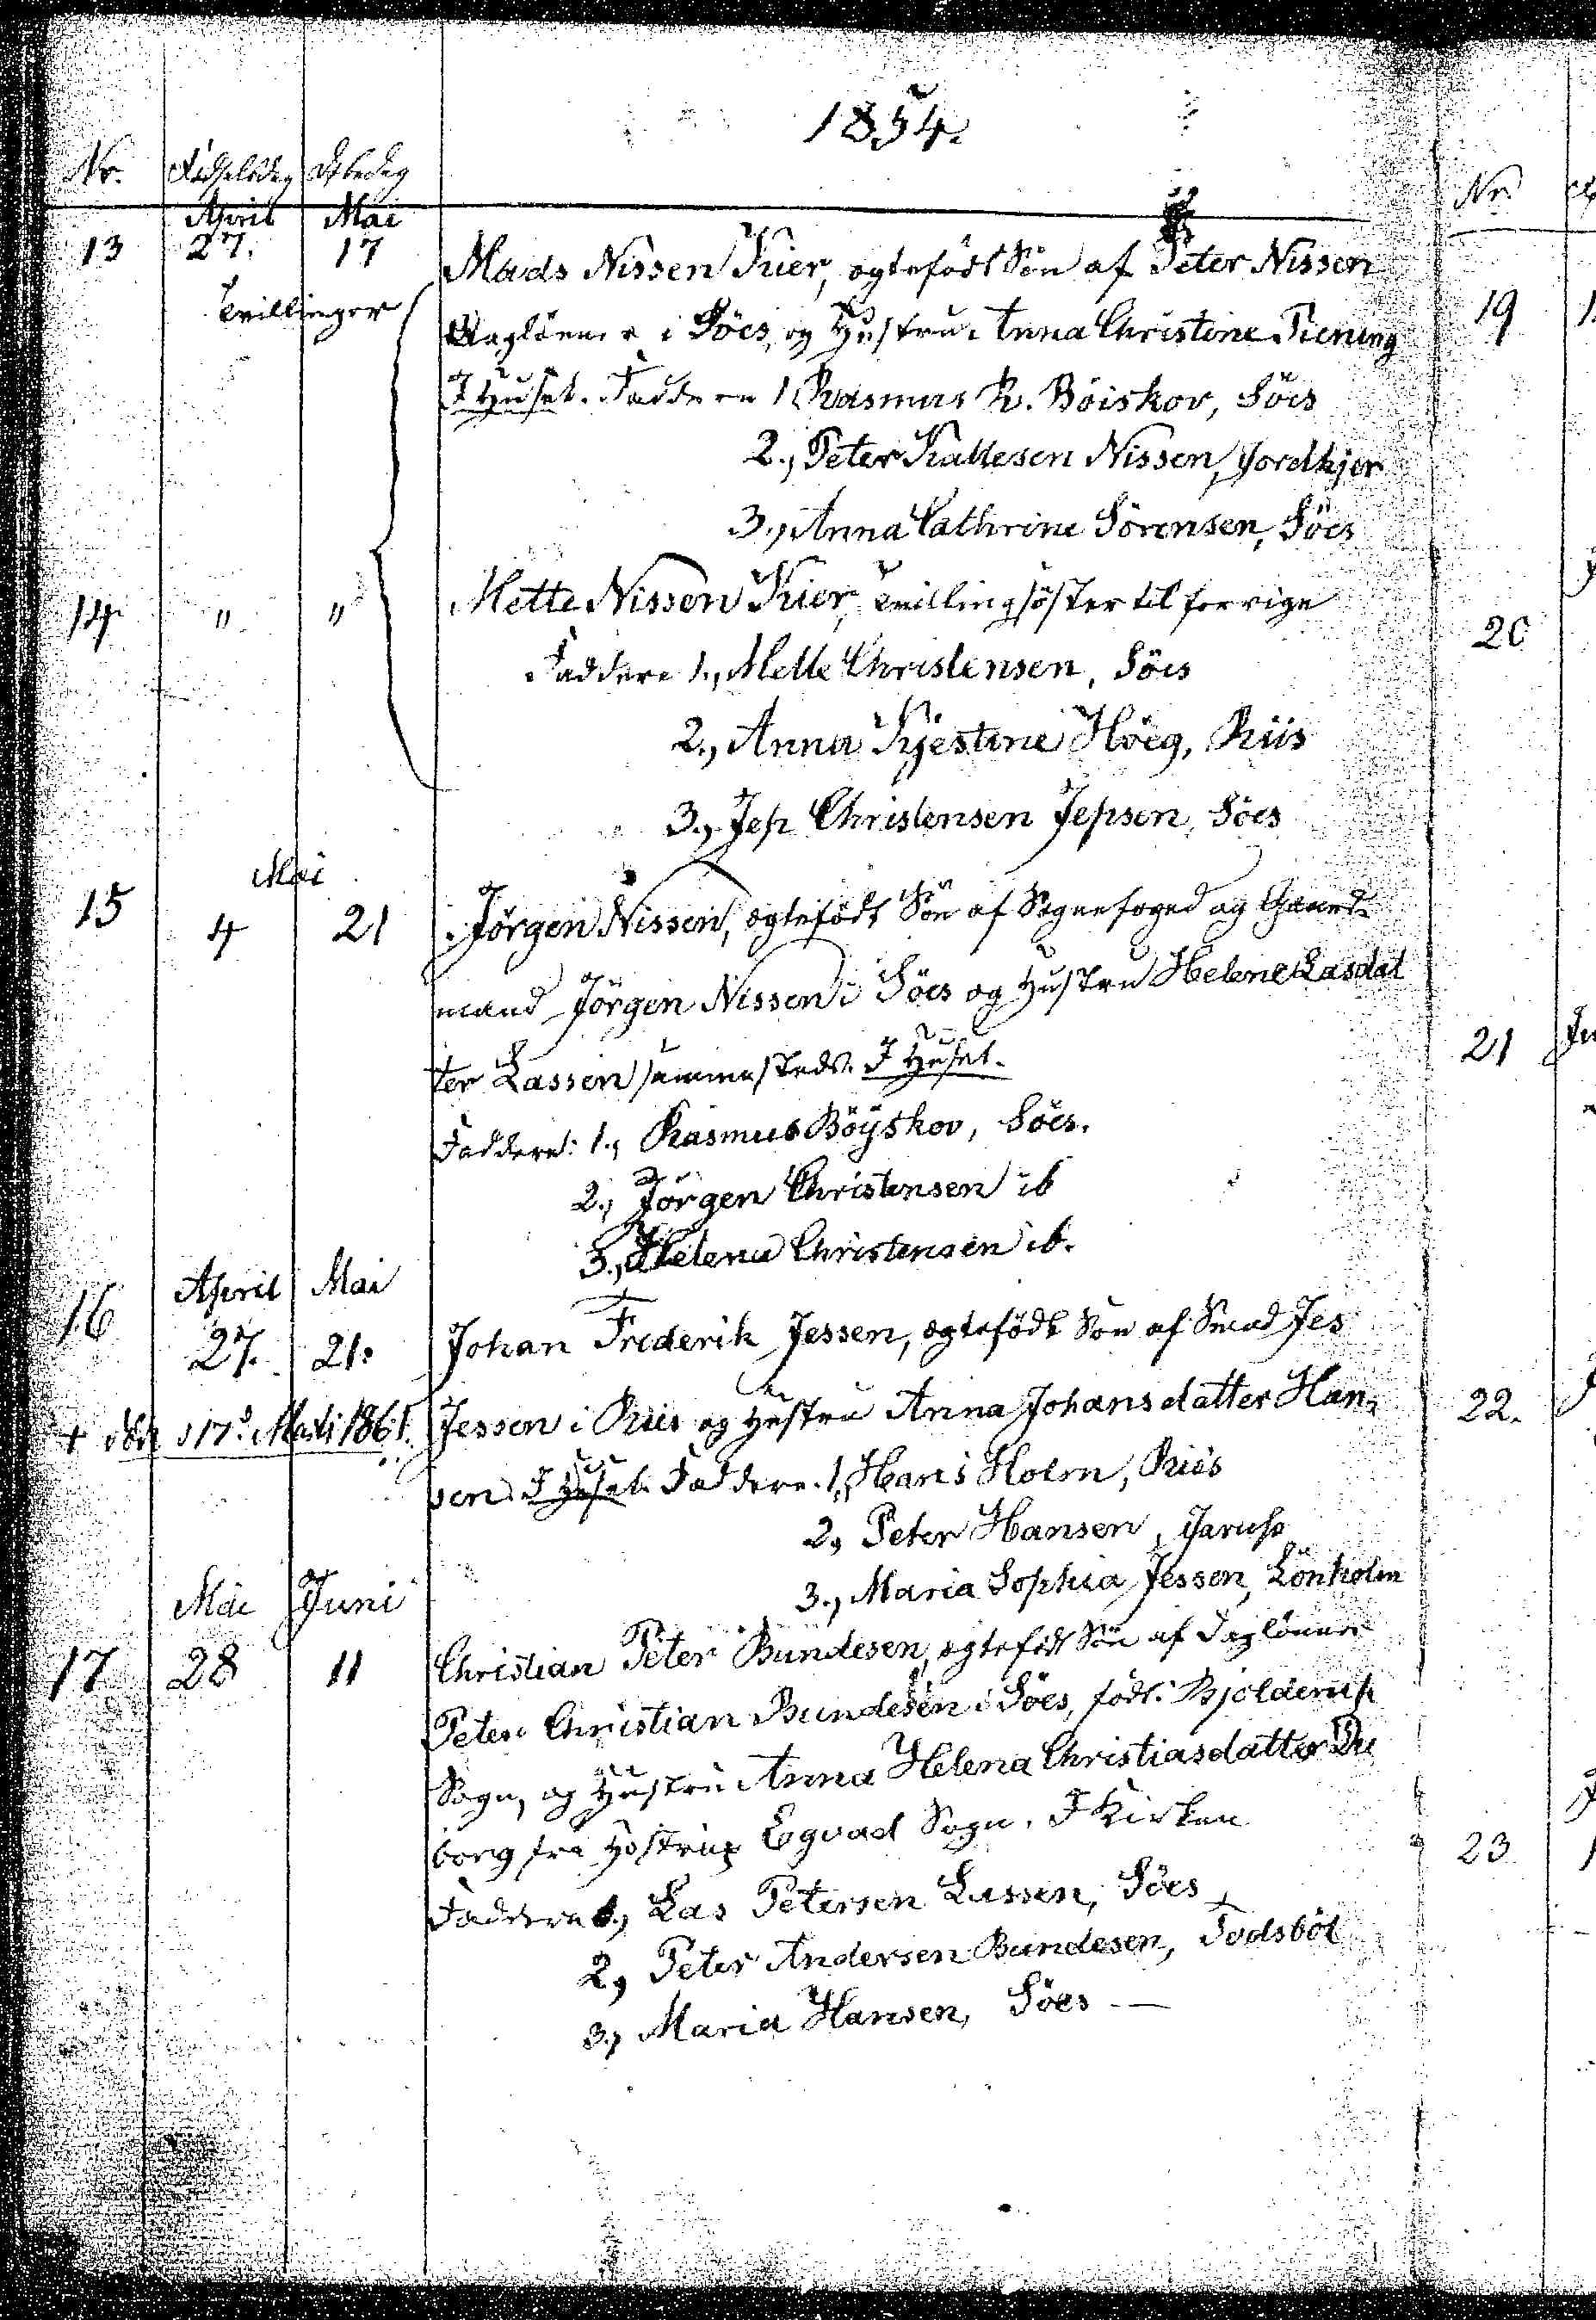 1854.
Nr. Födselsdag Döbedag
April Mai
13 27. 17 Mads Nissen Kier, ægtefödt Sön af Peter Nissen
Tvillinger
Daglönner i Söes, og Hustru Anna Christine Ticning
I Huset. Faddere 1, Rasmus R. Böiskov, Söes
2., Peter Kallesen Nissen, Jordkjer
3., Anna Cathrine Sörensen, Söes
14 " " Mette Nissen Kier, Tvillingsöster til forrige
Faddere 1., Mette Christensen, Söes
2., Anna Kjestine Höeg, Riis
3., Jep Christensen Jepsen, Söes
Mai
15 4 21 Jörgen Nissen, ægtefödt Sön af Sognefoged og Gaard-
mand Jörgen Nissen i Söes og Hustru Helene Lasdat
ter Lassen sammesteds. I Huset.
Faddere: 1., Rasmus Böÿskov, Söes.
2., Jörgen Christensen ib
3., Helena Christensen ib.
April Mai
16 27. 21. Johan Frederik Jessen, ægtefödt Sön af Smed Jes
+ död d 17d. Marts 1861. Jessen i Riis og Hustru Anna Johansdatter Han-
sen. I Huset. Faddere. 1., Hans Holm, Riis
2, Peter Hansen, Jarup
3., Maria Sophia Jessen, Lönholm
Mai Juni
17 28 11 Christian Peter Bundesen, ægtefödt Sön af Daglönner
Peter Christian Bundesen i Söes, födt i Bjolderup
Sogn, og Hustru Anna Helena Christiasdatter Du
borg fra Hostrup Egvad Sogn. I Kirken
Faddere 1., Las Petersen Lassen, Söes
2, Peter Andersen Bundesen, Todsböl
3., Maria Hansen, Söes —
Nr.
19
20
21
22.
23